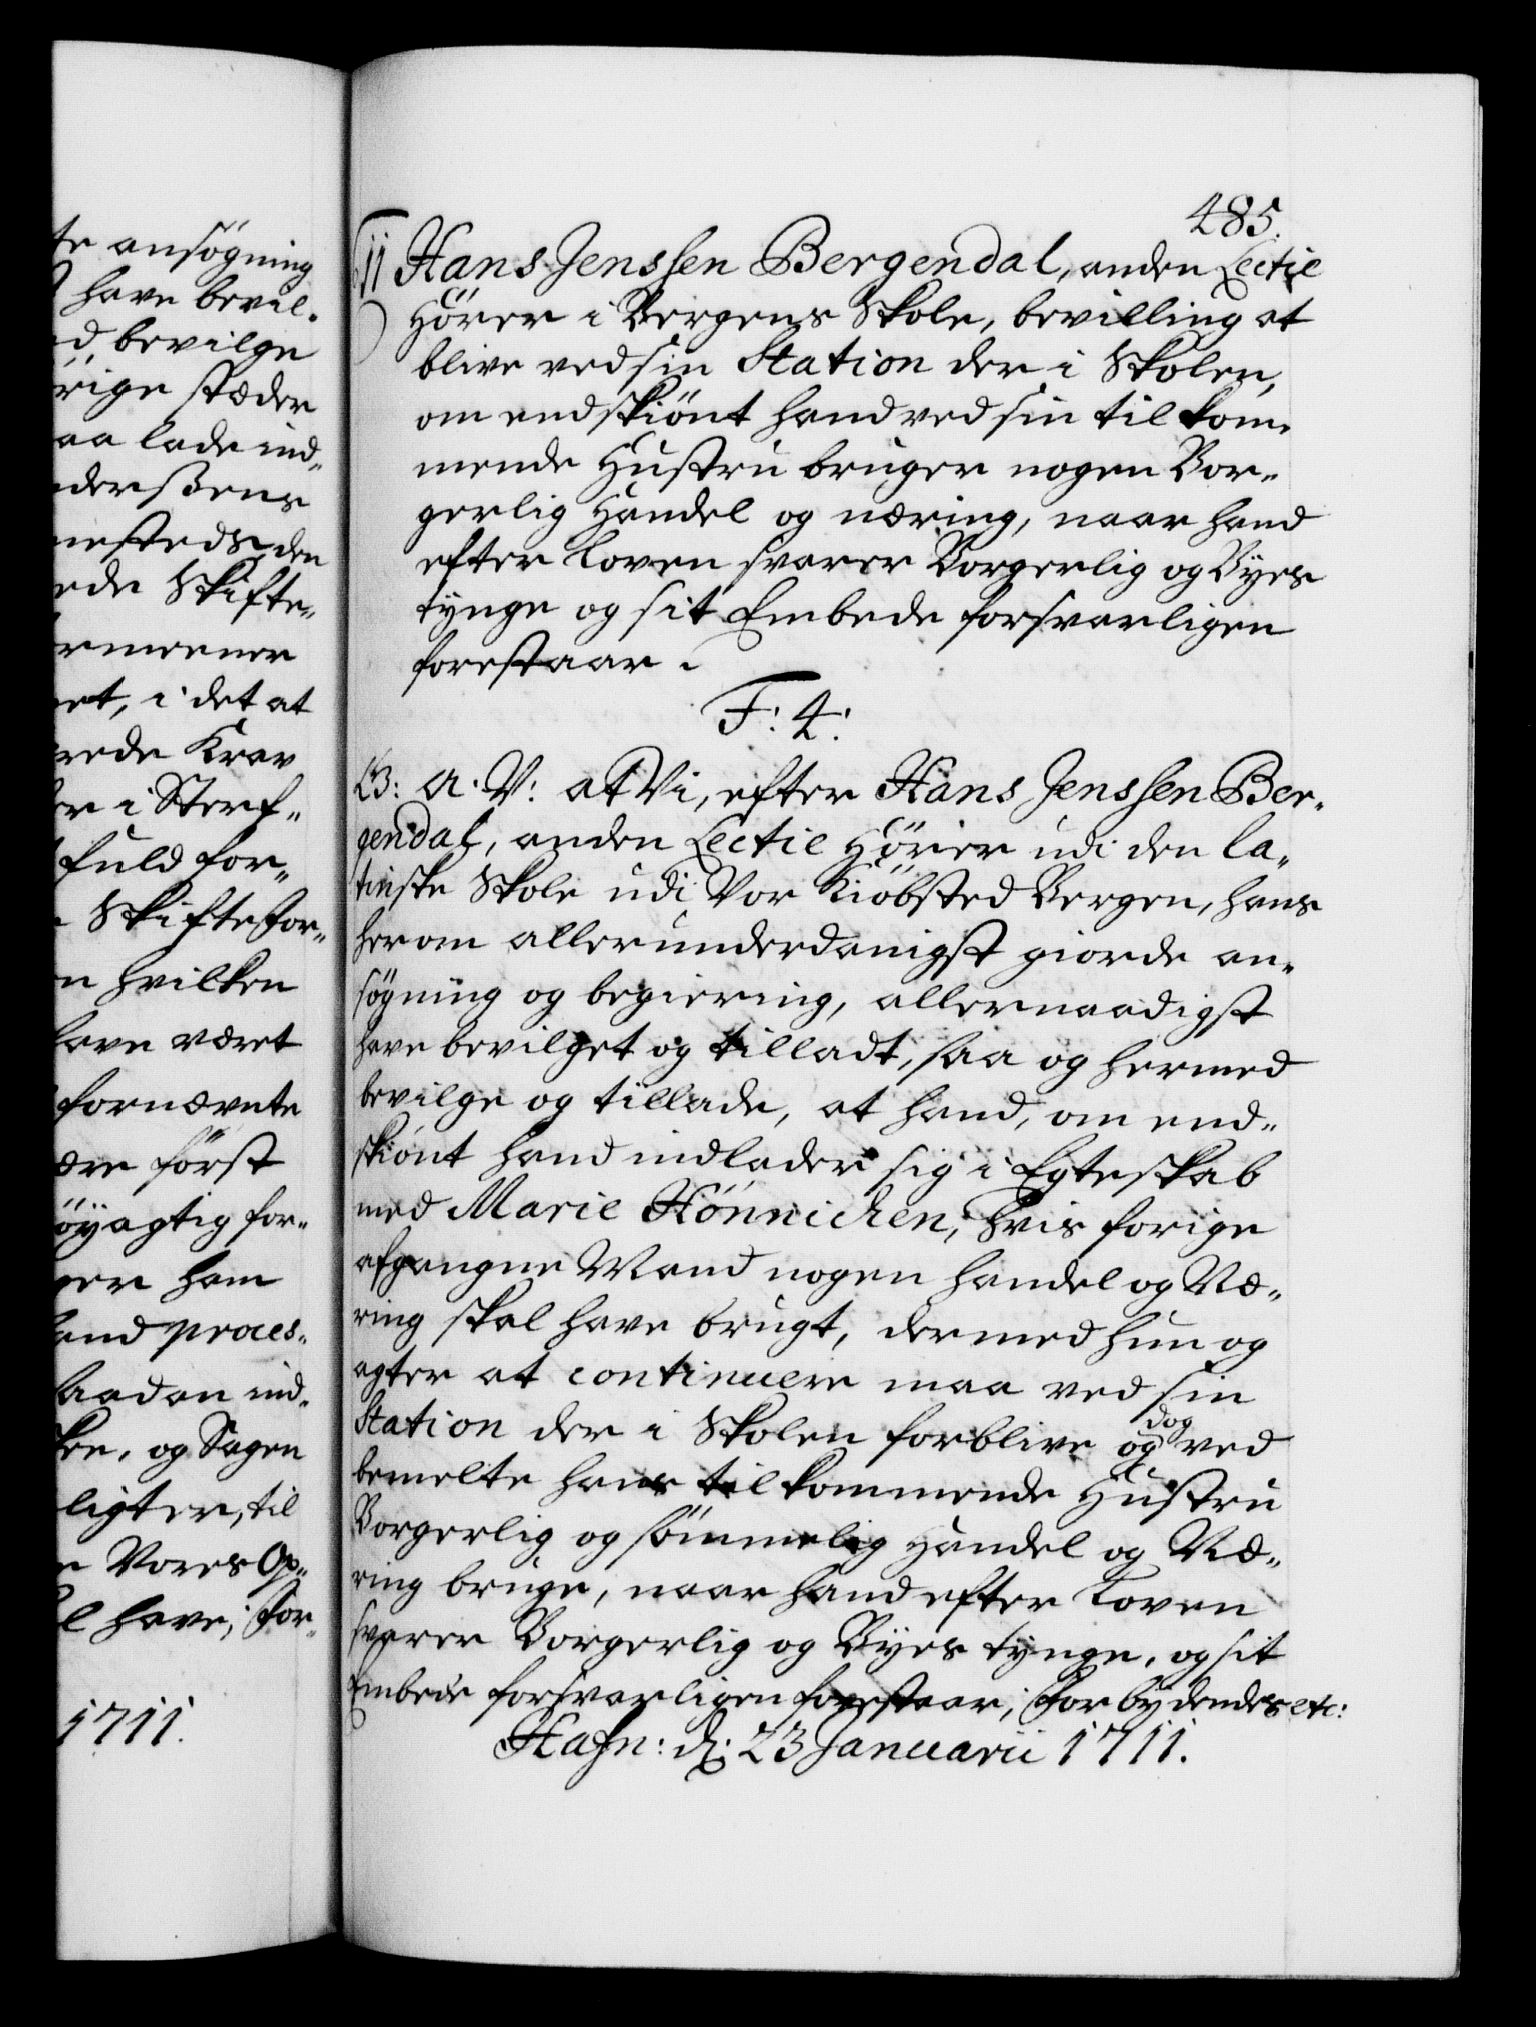 te ansøgning
have bevil-
d bevilge
rige stæder
aa lade ind-
dersßens
nesteds den
ede Skifte-
rmeener
et, i det at
rede Krav
er i Sterf-
fuld for-
Skiftefor-
n hvilken
have været
fornævnte
ære først
øyagtig for-
ger ham
and proces-
saadan ind-
ken, og Sagen
ligter, til
e Vores Op-
l have; For-
1711.
485.
Hans Jenssen Bergendal, anden Lectie
Hører i Bergens Skole, bevilling at
blive ved sin Station der i Skolen,
om endskiønt hand ved sin tilkom-
mende Hustru bruger nogen Bor-
gerlig Handel og næring, naar hand
efter Loven svarer Borgerlig og Byes
tynge og sit Embede forsvarligen
forestaar.
F: 4:
G: A: V: at Vi, efter Hans Jenssen Ber-
gendal, anden Lectie Hører udi den la-
tinske Skole udi Vor Kiøbsted Bergen, hans
herom allerunderdanigst giorde an-
søgning og begiering, allernaadigst
have bevilget og tilladt, saa og hermed
bevilge og tillade, at hand, om end-
skiønt hand indlader sig i Egteskab
med Marie Hönnichen, hvis forige
afgangne Mand nogen handel og Næ-
ring skal have brugt, dermed hun og
agter at continuere maa ved sin
Station der i Skolen forblive og dog ved
bemelte hans tilkommende Hustru
Borgerlig og sømmelig Handel og Næ-
ring bruge, naar hand efter Loven
svarer Borgerlig og Byes tynge, og sit
Embede forsvarligen forestaar; Forbydendes etc:
Hafn: d: 23 Januarii 1711.